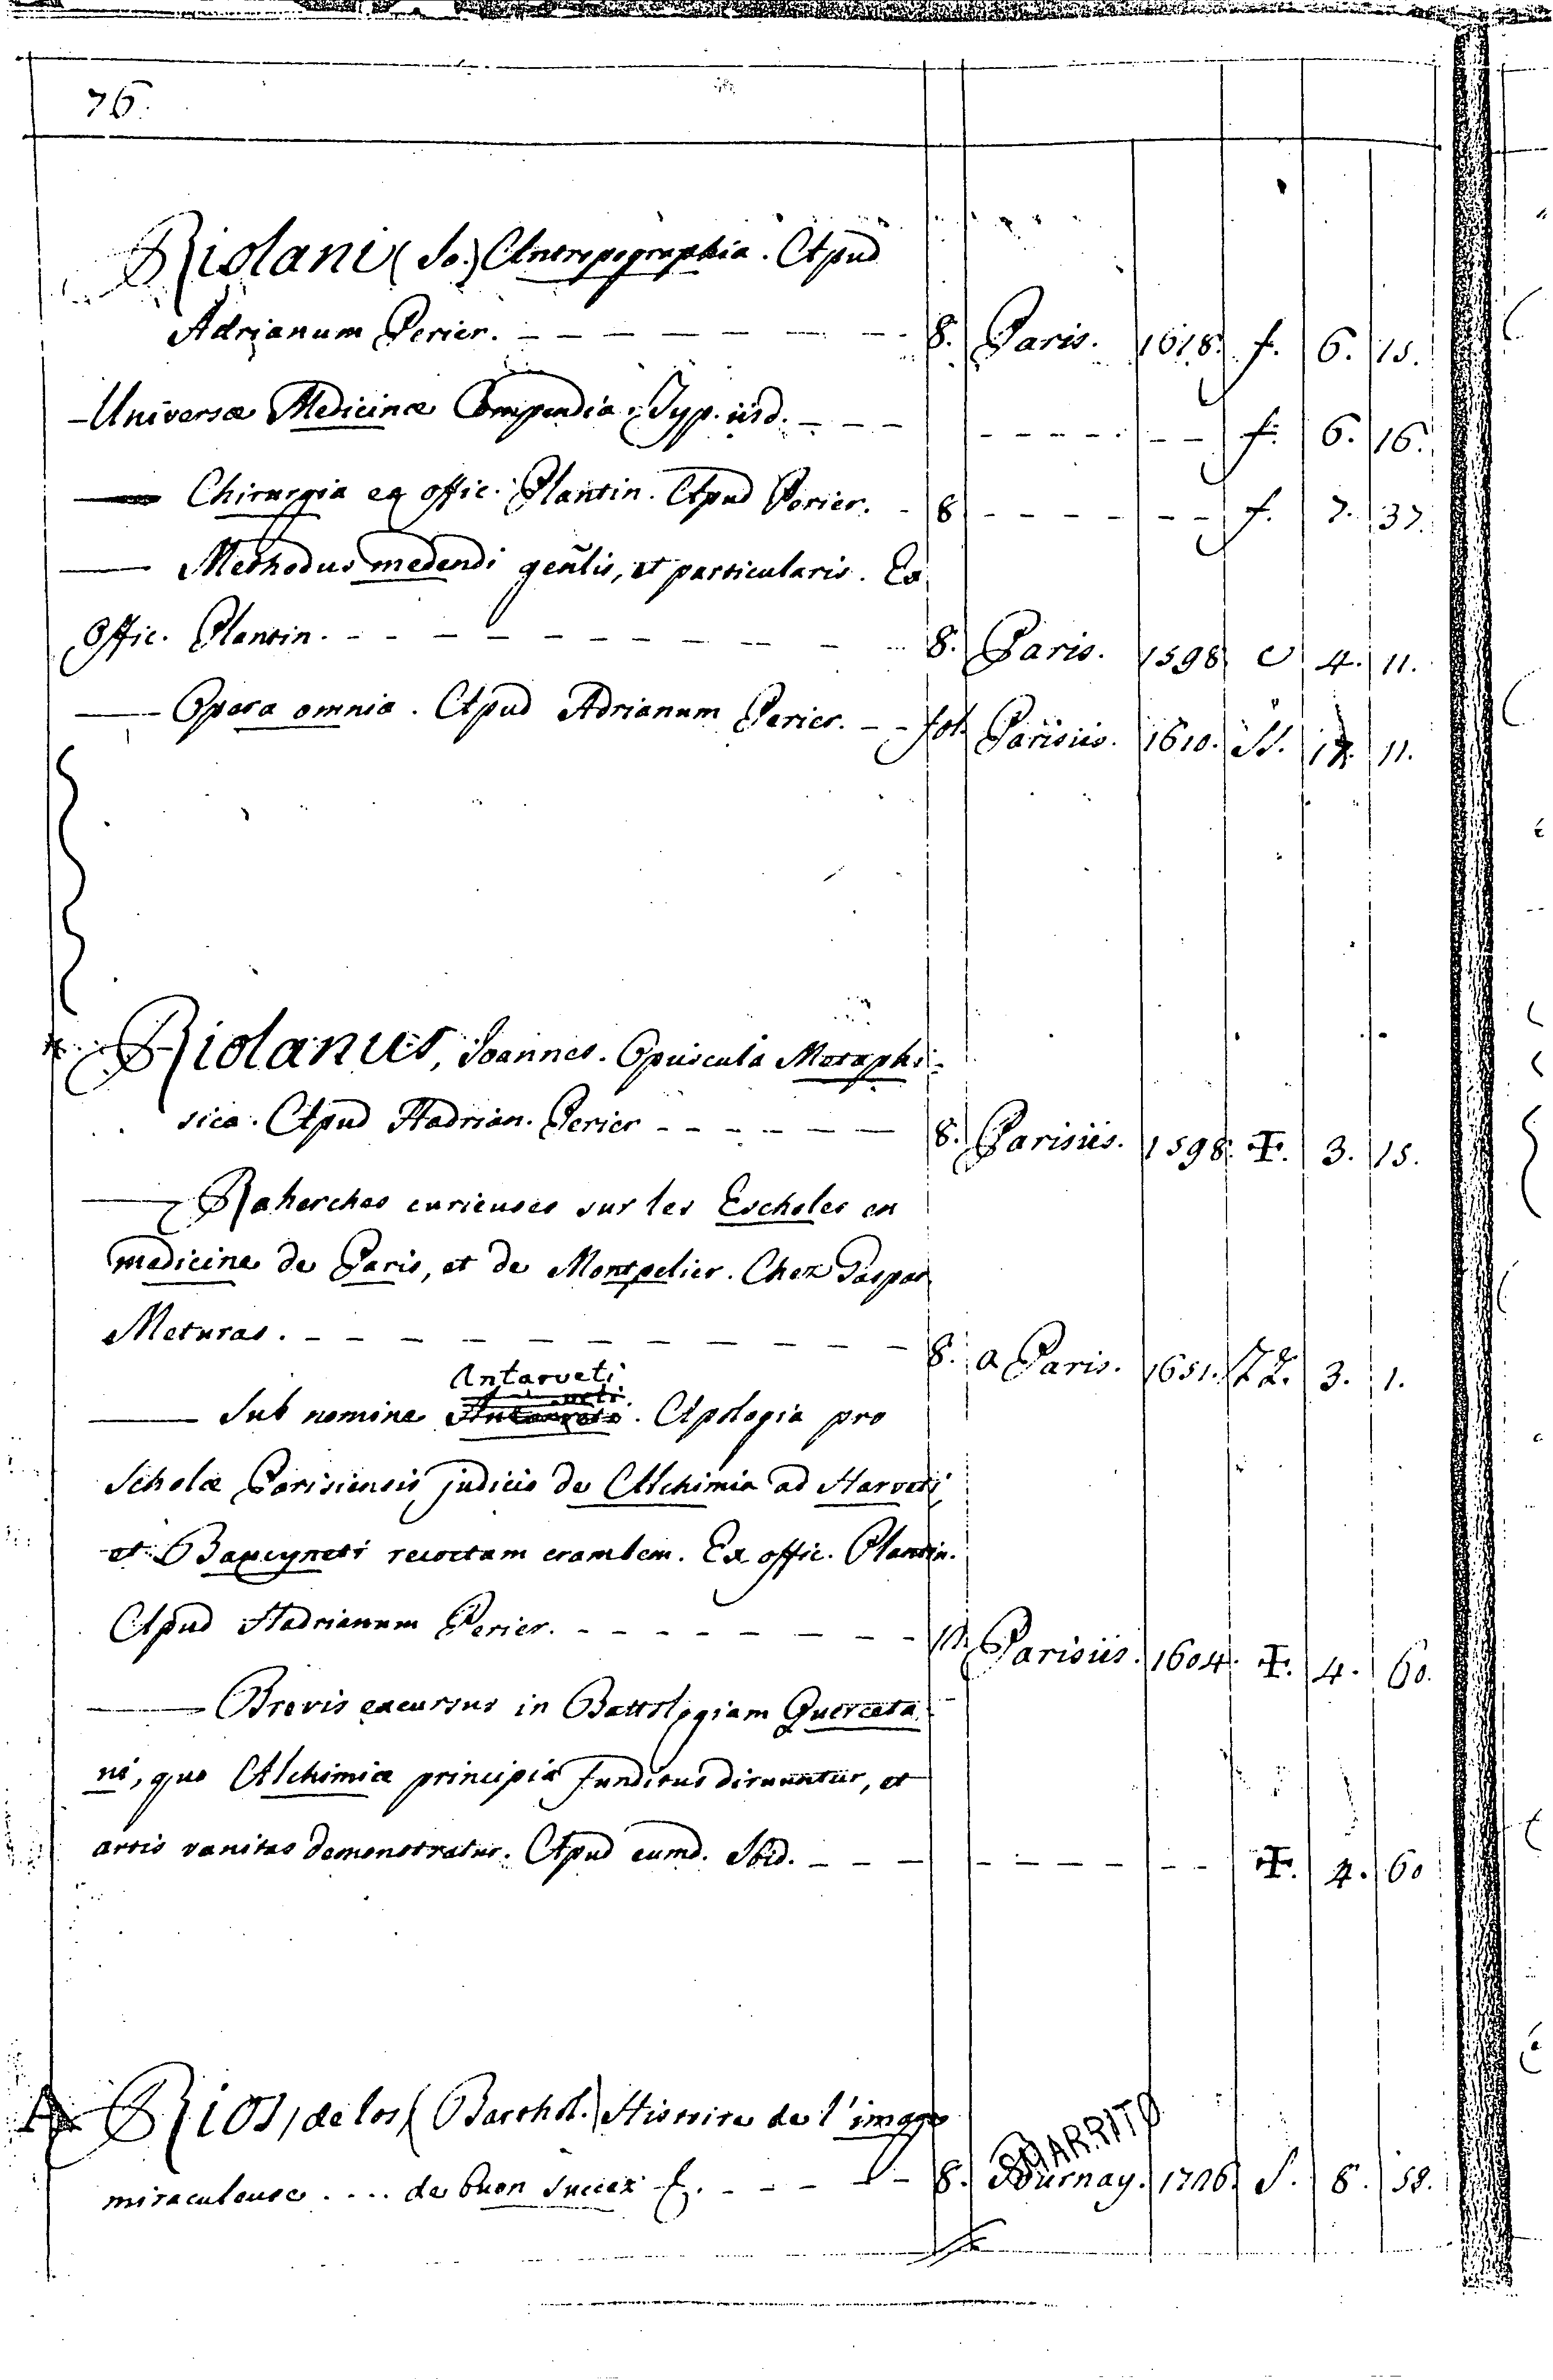 76.
Riolani (Jo.) Antropographia. Apud
Adrianum Perier. - - - - - - - 8. Paris. 1618. f. 6. 15.
- Universæ Medicinæ Compendia. Typ. iisd. - - - - - - - - - - - f. 6. 16.
— Chirurgia ex offic. Plantin. Apud Perier. - 8 - - - - - - f. 7. 37.
— Methodus medendi gen̄lis, et particularis. Ex
Offic. Plantin. - - - - - - - - - - 8. Paris. 1598 c 4. 11.
— Opera omnia. Apud Adrianum Perier. - - fol. Parisiis. 1610. 11.
Riolanus, Joannes. Opuscula Metaphi-
sica. Apud Hadrian. Perier - - - - - - 8. Parisiis. 1598. Ŧ. 3. 15.
— Reherches curieuses sur les Escholes en
medicine de Paris, et de Montpelier. Chez Gaspar
Meturas. - - - - - - - - - - 8. a Paris. 1651. ZZ. 3. 1.
Antarveti
— Sub nomine . Apologia pro
Scholæ Parisiensis judicio de Alchimia ad Harveti
et Baucyneti recoctam crambem. Ex offic. Plantin.
Apud Hadrianum Perier. - - - - - - - - Parisiis. 1604. Ŧ. 4. 60.
— Brevis excursus in Battologiam Querceta
ni, quo Alchimiæ principia funditus diruuntur, et
artis vanitas demonstratur. Apud eumd. Ibid. - - - - - - - - - Ŧ. 4. 60
SMARRITO
Rios, de los (Barthol.) Histoire de l'image
miraculeuse .... de buon succez &. - - - - - 8. Tournay. 1706. S. 8. 58.